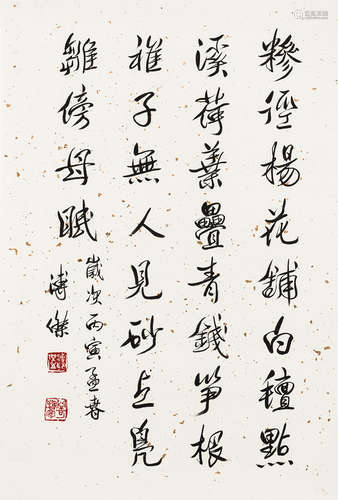 糝徑楊花舖白氈點
溪荷葉疊青錢笋根
稚子無人見砂上鳧
雛傍母眠
歲次丙寅孟春
溥傑